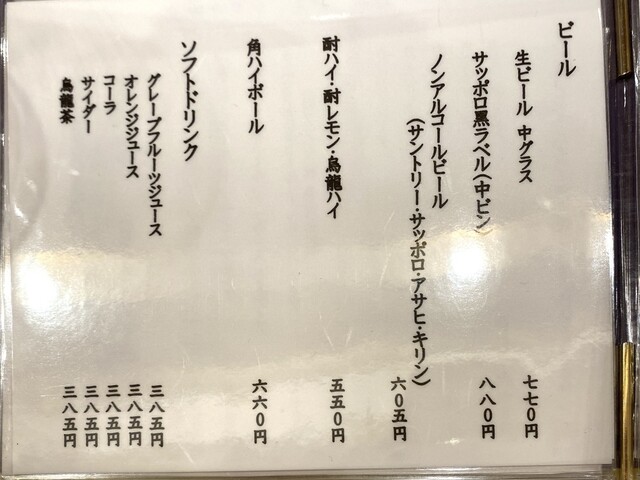 ビール
生ビール 中グラス 七七〇円
サッポロ黒ラベル(中ビン) 八八〇円
ノンアルコールビール
(サントリー・サッポロ・アサヒ・キリン) 六〇五円
酎ハイ・酎レモン・烏龍ハイ 五五〇円
角ハイボール 六六〇円
ソフトドリンク
グレープフルーツジュース 三八五円
オレンジジュース 三八五円
コーラ 三八五円
サイダー 三八五円
烏龍茶 三八五円